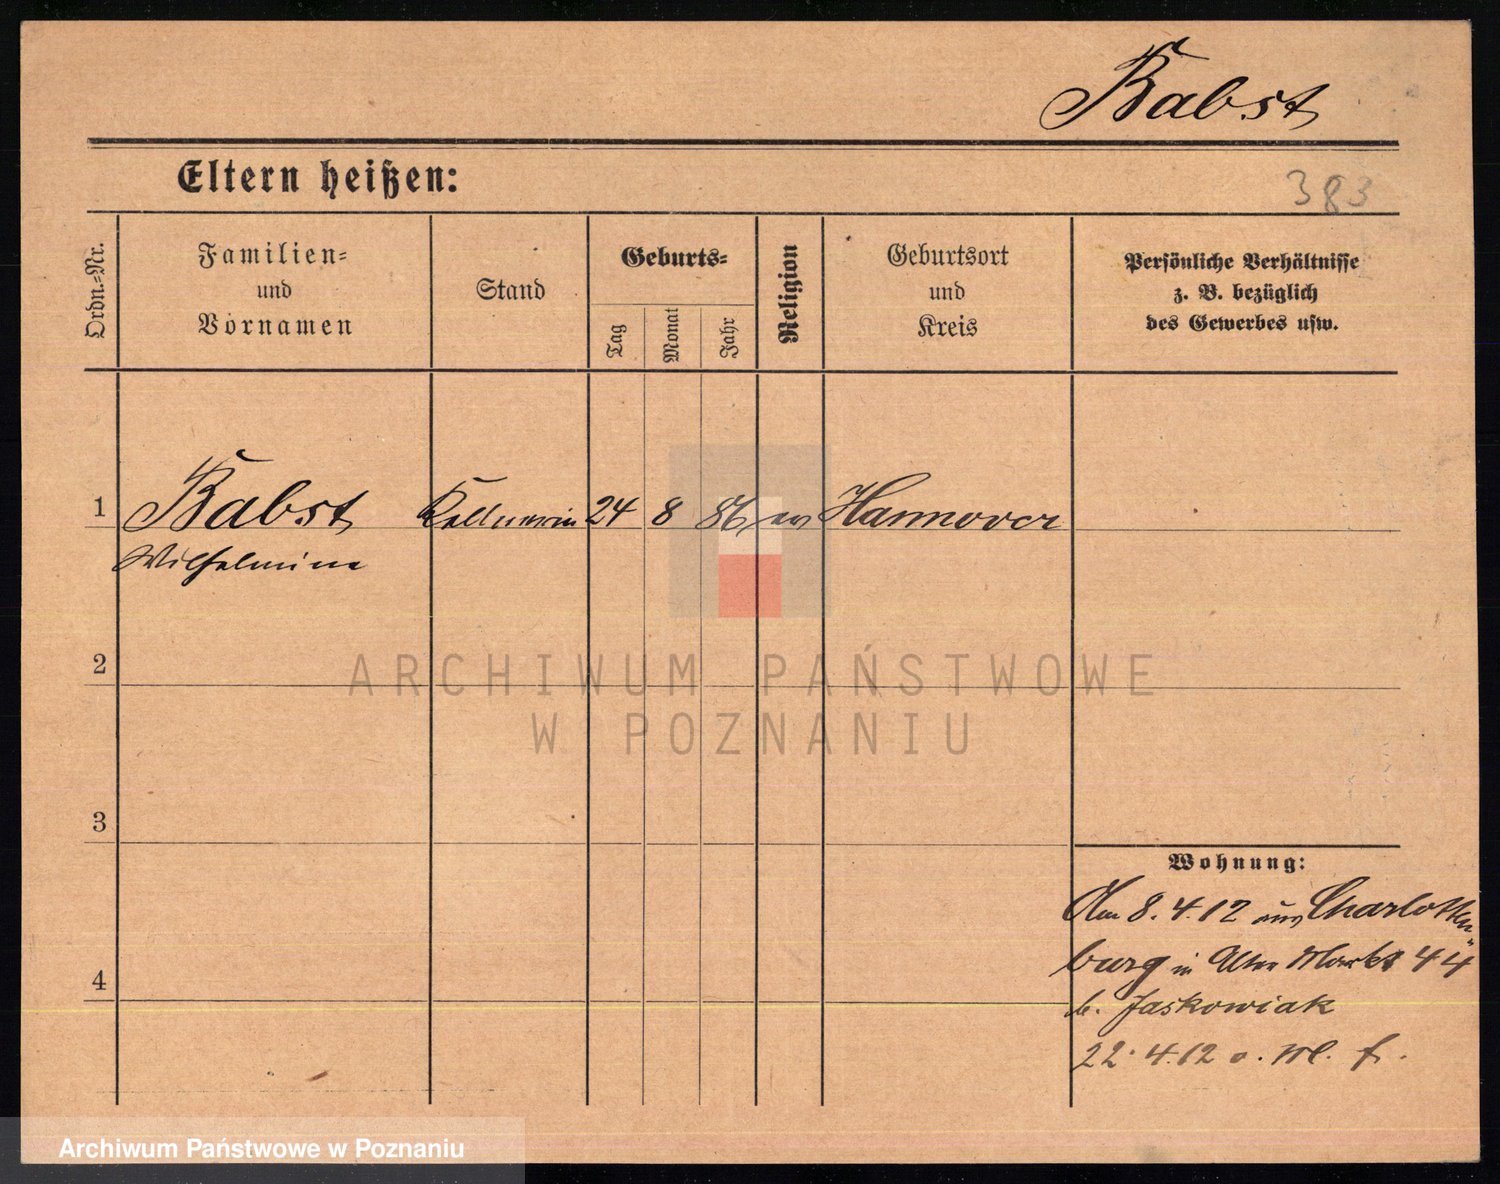 Babst
Eltern heißen:
383
Ordn.-Nr.
Familien-
und
Vornamen
Stand
Geburts-
Tag
Monat
Jahr
Religion
Geburtsort
und
Kreis
Persönliche Verhältnisse
z. B. bezüglich
des Gewerbes usw.
1 Babst Kellnerin 24 8 86 ev Hannover
Wilhelmine
2
3
4
Wohnung:
Am 8.4.12 aus Charlotten
burg in Alter Markt 44
b. Jaskowiak
22.4.12 o. M. f.
ARCHIWUM PAŃSTWOWE
W POZNANIU
Archiwum Państwowe w Poznaniu